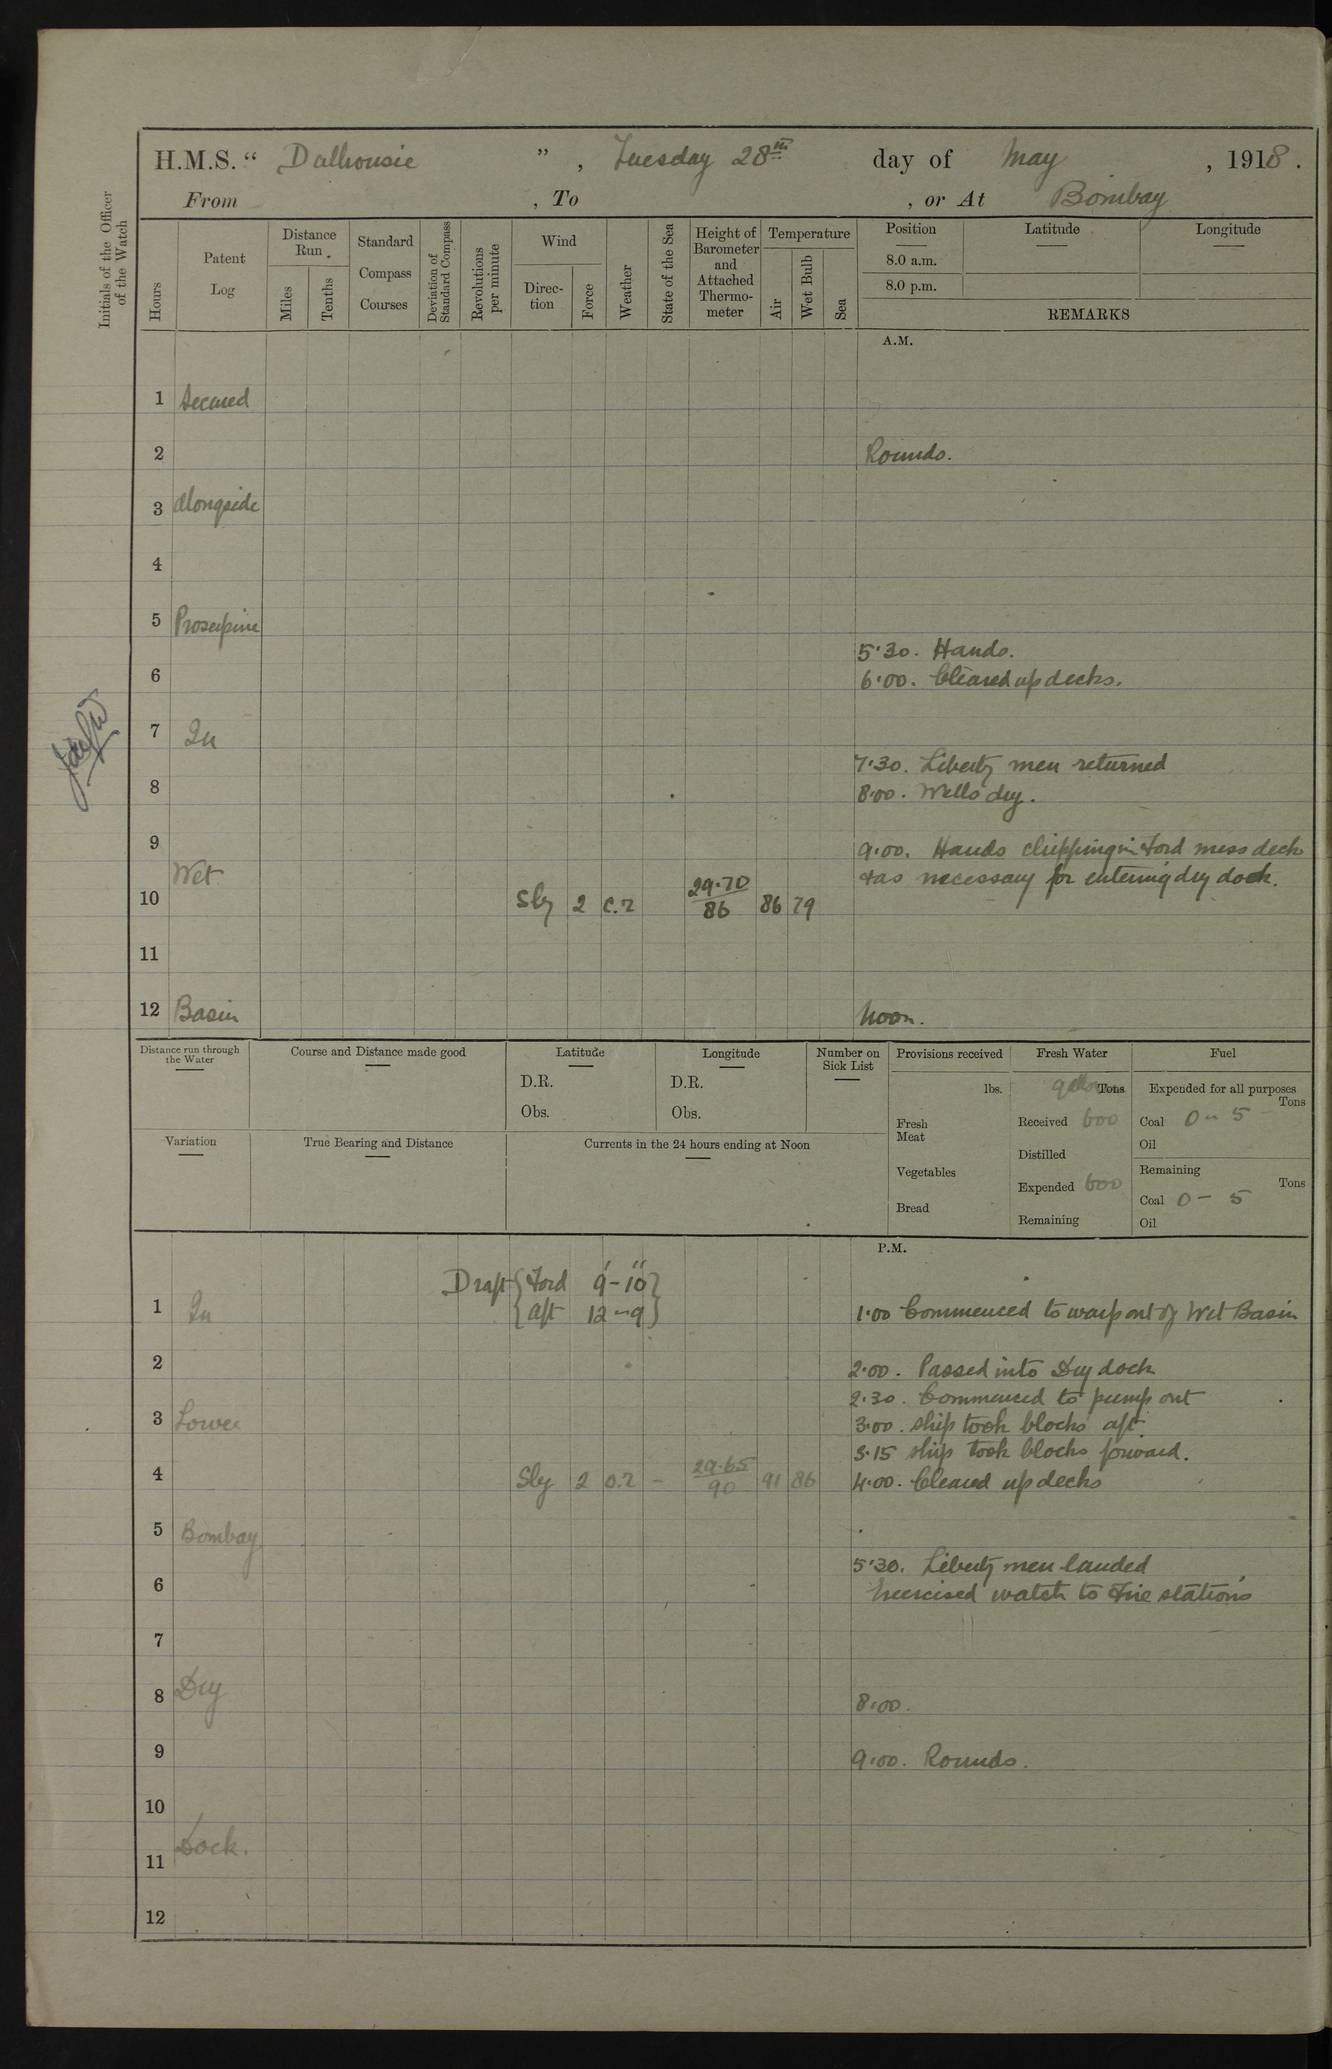 H.M.S. “ Dalhousie ” , Tuesday 28th day of May , 1918 .
From , To , or At Bombay
Initials of the Officer of the Watch
Hours
Patent Log
Distance Run .
Miles
Tenths
Standard Compass Courses
Deviation of Standard Compass
Revolutions per minute
Wind
Direc-tion
Force
Weather
State of the Sea
Height of Barometer and Attached Thermo-meter
Temperature
Air
Wet Bulb
Sea
Position Latitude Longitude
8.0 a.m.
8.0 p.m.
REMARKS
A.M.
1 Secured
2 Rounds.
3 alongside
4
5 Proserpine
5·30. Hands.
6 6·00. Cleared up decks.
7 In
7·30. Liberty men returned
8 8·00. Wells dry.
9 9·00. Hands chipping in Ford mess deck
Wet &as necessary for entering dry dock.
10 Sly 2 c.z 29·70 / 86 86 79
11
12 Basin Noon.
Distance run through the Water
Course and Distance made good
Latitude
D.R.
Obs.
Longitude
D.R.
Obs.
Number on Sick List
Provisions received
lbs.
Fresh Meat
Vegetables
Bread
Fresh Water
gallons Tons
Received 600
Distilled
Expended 600
Remaining
Fuel
Expended for all purposes
Tons
Coal 0 - 5
Oil
Remaining
Tons
Coal 0 - 5
Oil
Variation
True Bearing and Distance
Currents in the 24 hours ending at Noon
P.M.
Draft { Ford 9'-10" }
{ aft 12 - 9 }
1 In 1·00 Commenced to warp out of Wet Basin
2 2·00. Passed into Dry dock
2·30. Commenced to pump out
3 Lower 3·00. Ship took blocks aft.
3·15 ship took blocks forward.
4 Sly 2 o.z - 29·65 / 90 91 86 4·00. Cleared up decks
5 Bombay
5·30. Liberty men landed
6 Exercised watch to Fire stations
7
8 Dry 8·00.
9 9·00. Rounds.
10
Dock.
11
12